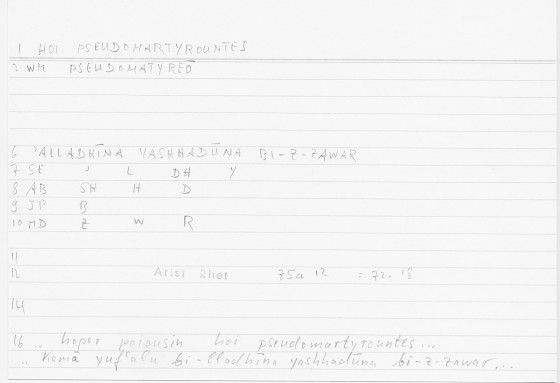 1 HOI PSEUDOMARTYROUNTES
2 WM PSEUDOMATYREŌ
6 'ALLADHĪNA YASHHADŪNA BI-Z-ZAWAR
7 SE ' L DH Y
8 AB SH H D
9 JP B
10 MD Z W R
11
12 Arist Rhet 75a 12 = 72. 18
14
16 .. hoper poiousin hoi pseudomartyrountes...
.. Komā yuf'alu bi-lladhīna yashhadūna bi-z-zawar...